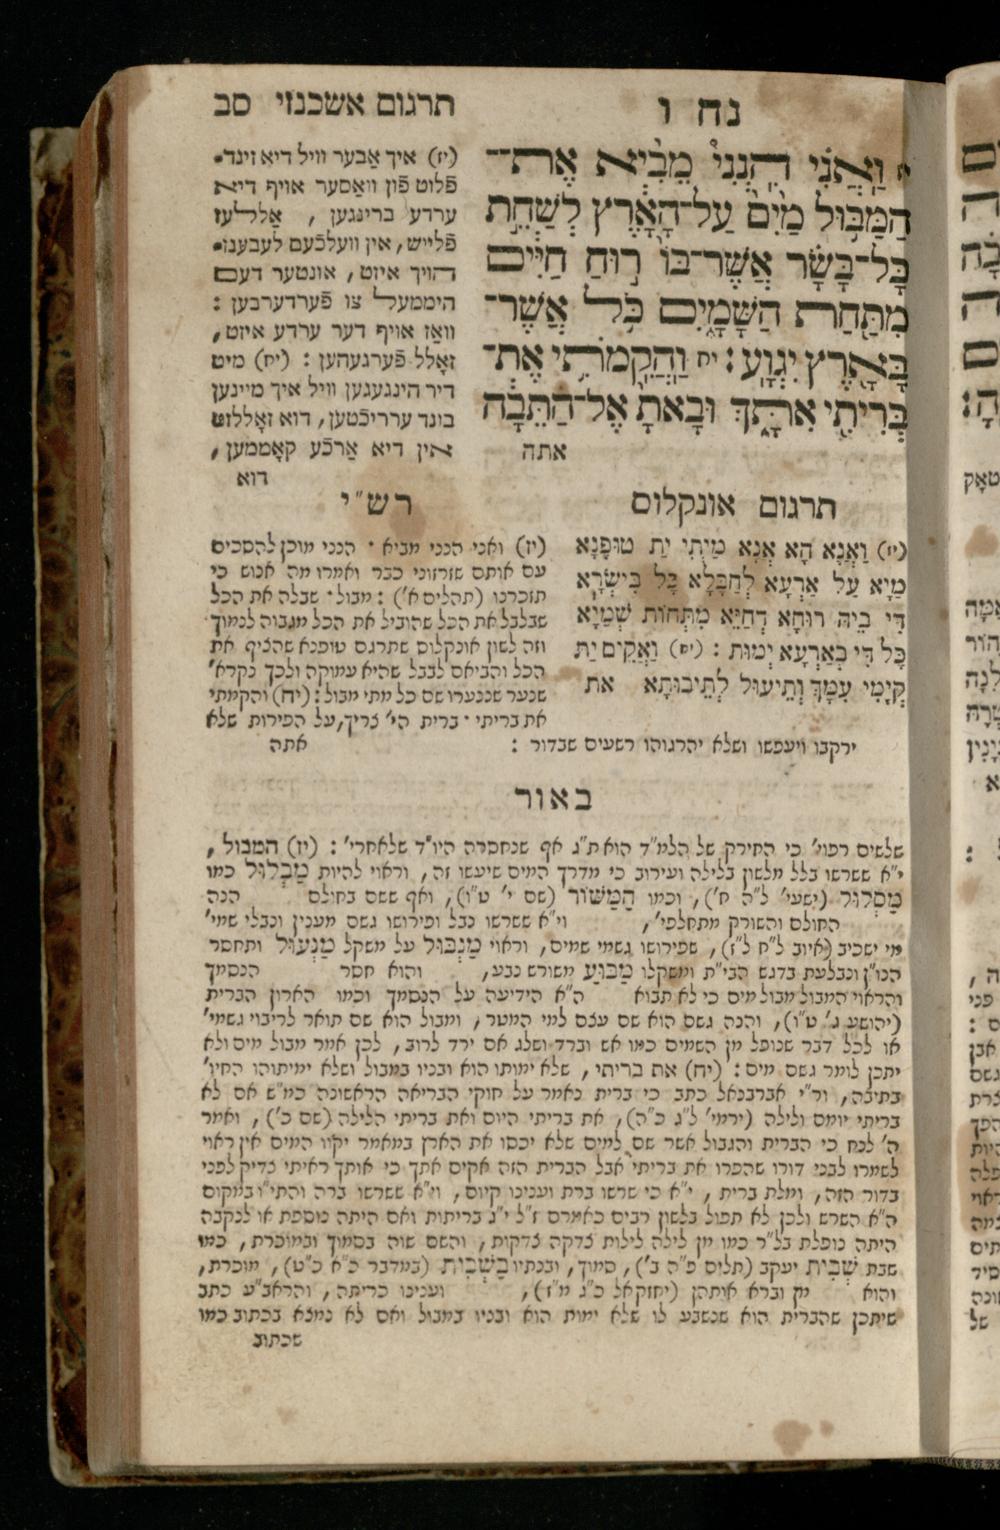 נח ו
תרגום אשכנזי סב
וַאֲנִ֗י הִנְנִי֩ מֵבִ֨יא אֶת־
הַמַּבּ֥וּל מַ֙יִם֙ עַל־הָאָ֔רֶץ לְשַׁחֵ֣ת
כָּל־בָּשָׂ֗ר אֲשֶׁר־בּוֹ֙ ר֣וּחַ חַיִּ֔ים
מִתַּ֖חַת הַשָּׁמָ֑יִם כֹּ֥ל אֲשֶׁר־
בָּאָ֖רֶץ יִגְוָֽע׃ יח וַהֲקִמֹתִ֥י אֶת־
בְּרִיתִ֖י אִתָּ֑ךְ וּבָאתָ֙ אֶל־הַתֵּבָ֔ה
אתה
(יז) איך אַבער וויל דיא זינד־
פֿלוט פֿון וואַסער אויף דיא
ערדע ברינגען , אַללעז
פֿלייש, אין וועלכֿעם לעבענז־
הויך איזט, אונטער דעם
היממעל צו פֿערדערבען :
וואַז אויף דער ערדע איזט,
זאָלל פֿערגעהען : (יח) מיט
דיר הינגעגען וויל איך מיינען
בונד ערריכֿטען, דוא זאָללזט
אין דיא אַרכֿע קאָממען,
דוא
תרגום אונקלוס
(יז) וַאֲנָא הָא אֲנָא מַיְתִי יַת טוֹפָנָא
מַיָא עַל אַרְעָא לְחַבָּלָא כָּל בִּישְׂרָא
דִּי בֵיהּ רוּחָא דְחַיֵּא מִתְּחוֹת שְׁמַיָא
כָּל דִּי בְאַרְעָא יְמוּת : (יח) וַאֲקֵים יַת
קְיָמִי עִמָּךְ וְתֵיעוּל לְתֵיבוּתָא את
רש״י
(יז) ואני הנני מביא · הנני מוכן להסכים
עם אותם שזרזוני כבר ואמרו מה אנוש כי
תזכרנו (תהלים א׳) : מבול · שבלה את הכל
שבלבל את הכל שהוביל את הכל מגבוה לנמוך
וזה לשון אונקלוס שתרגם טופנא שהציף את
הכל והביאם לבבל שהיא עמוקה ולכך נקרא׳
שנער שננערו שם כל מתי מבול : (יח) והקמתי
את בריתי · ברית הי׳ צריך, על הפירות שלא
ירקבו ויעפשו ושלא יהרגוהו רשעים שבדור :
אתה
באור
שלשים רפוי׳ כי החירק של הלמ״ד הוא ת״ג אף שנחסרה היו״ד שלאחרי׳ : (יז) המבול ,
י״א ששרשו בלל מלשון בלילה ועירוב כי מדרך המים שיעשו זה, וראוי להיות מַבְלוּל כמו
מַסְלוּל (ישעי׳ ל״ה ח׳), וכמו הַמַּשּׂוֹר (שם י׳ ט״ו), ואף ששם בחולם הנה
החולם והשורק מתחלפי׳, וי״א ששרשו נבל ופירושו גשם מענין ונבלי שמי׳
מי ישכיב (איוב ל״ח ל״ז), שפירושו גשמי שמים, וראוי מַנְבּוּל על משקל מַנְעוּל ותחסר
הנו״ן ונבלעת בדגש הבי״ת ומשקלו מַבּוּעַ משורש נבע, והוא חסר הנסמך
והראוי המבול מבול מים כי לא תבוא ה״א הידיעה על הנסמך וכמו הארון הברית
(יהושע ג׳ ט״ו), והנה גשם הוא שם עצם למי המטר, ומבול הוא שם תואר לריבוי גשמי׳
או לכל דבר שנופל מן השמים כמו אש וברד ושלג אם ירד לרוב, לכן אמר מבול מים ולא
יתכן לומר גשם מים : (יח) את בריתי, שלא ימותו הוא ובניו במבול ושלא ימיתוהו החיו׳
בתיבה, ור״י אברבנאל כתב כי ברית נאמר על חוקי הבריאה הראשונה כמ״ש אם לא
בריתי יומם ולילה (ירמי׳ ל״ג כ״ה), את בריתי היום ואת בריתי הלילה (שם כ׳), ואמר
ה׳ לנח כי הברית והגבול אשר שם למים שלא יכסו את הארץ במאמר יקוו המים אין ראוי
לשמרו לבני דורו שהפרו את בריתי אבל הברית הזה אקים אתך כי אותך ראיתי צדיק לפני
בדור הזה, ומלת ברית , י״א כי שרשו ברת וענינו קיום, וי״א ששרשו ברה והתי״ו במקום
ה״א השרש ולכן לא תפול בלשון רבים כאמרם ז״ל י״ג בריתות ואם היתה נוספת או לנקבה
היתה נופלת בל״ר כמו מן לילה לילות צדקה צדקות, והשם שוה בסמוך ובמוכרת, כמו
שבת שְׁבִית יעקב (תלים פ״ה ב׳), סמוך, ובנתיו בַּשְּׁבִית (במדבר כ״א כ״ט), מוכרת,
והוא מן וברא אותהן (יחזקאל כ״ג מ״ז), וענינו כריתה, והראב״ע כתב
שיתכן שהברית הוא שנשבע לו שלא ימות הוא ובניו במבול ואם לא נמצא בכתוב כמו
שכתוב